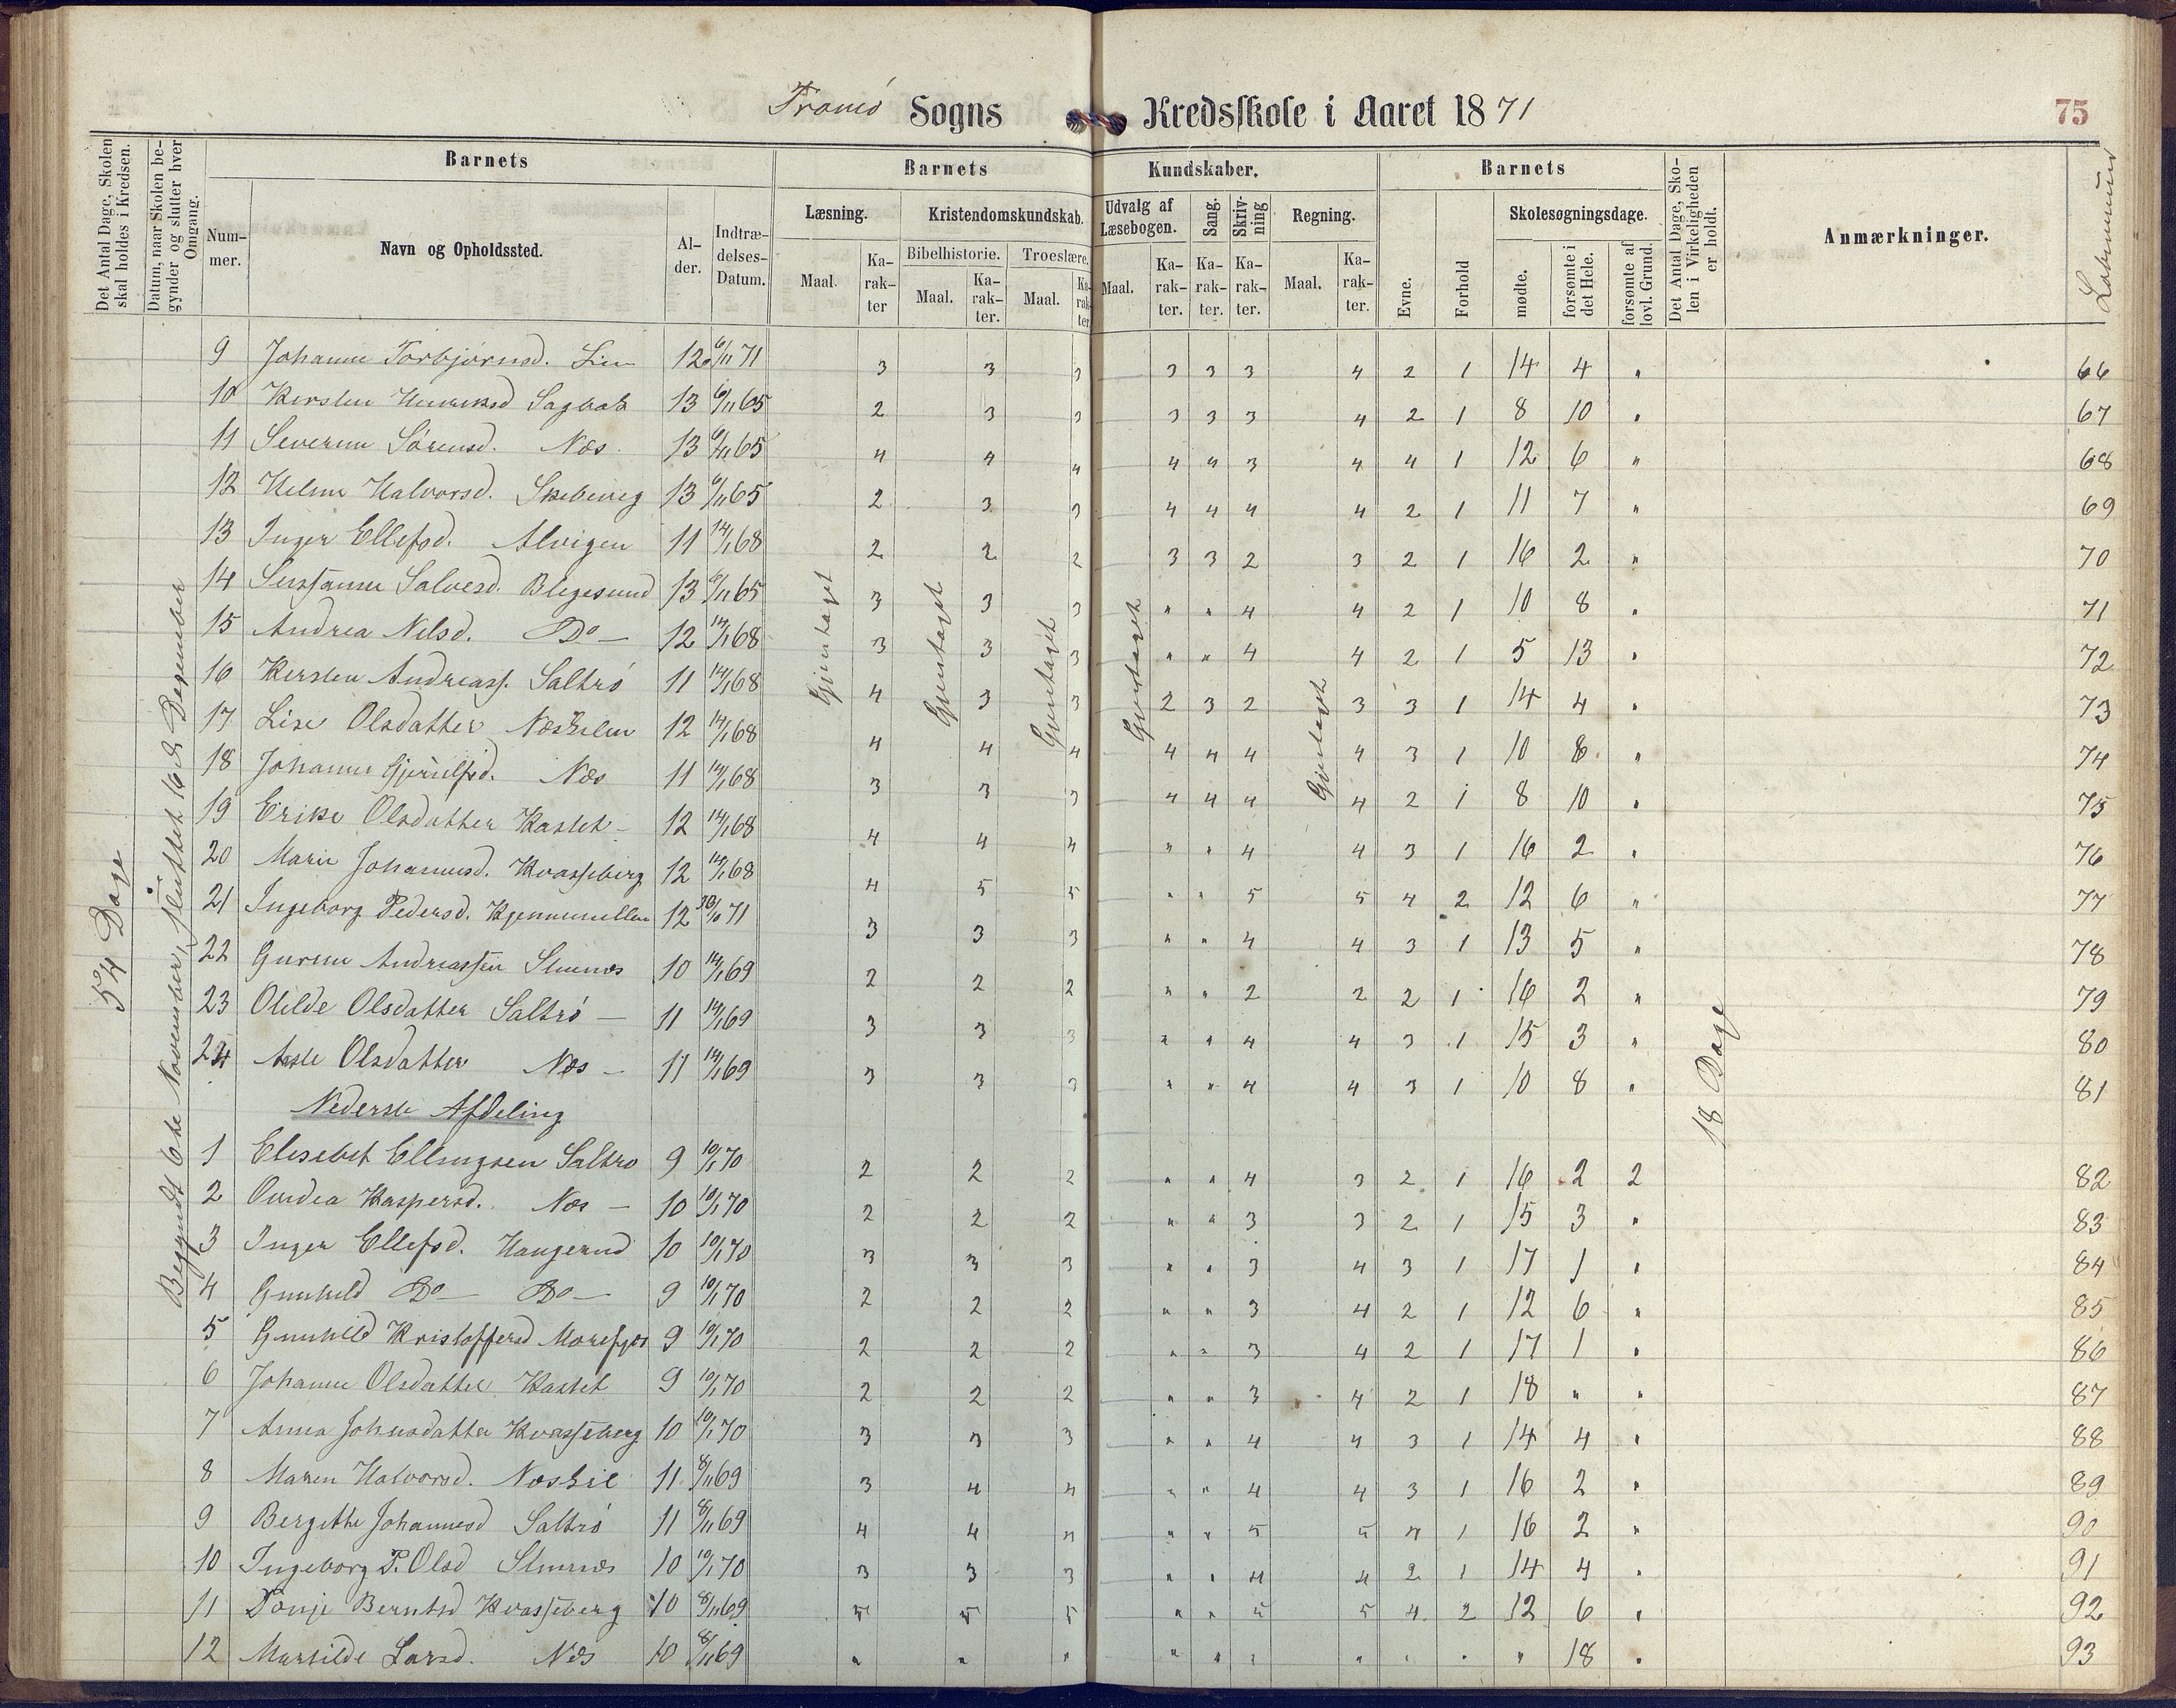 Tromö Sogns Kredsskole i Aaret 1871
75
Det Antal Dage, Skolen skal holdes i Kredsen.
Datum, naar Skolen begynder og slutter hver Omgang.
Barnets
Nummer.
Navn og Opholdssted.
Alder.
Indtrædelses-Datum.
Barnets Kundskaber.
Læsning.
Maal.
Karakter
Kristendomskundskab.
Bibelhistorie.
Maal.
Karakter.
Troeslære.
Maal.
Karakter.
Udvalg af Læsebogen.
Maal.
Karakter.
Sang.
Karakter.
Skrivning
Karakter.
Regning.
Maal.
Karakter.
Barnets
Evne.
Forhold
Skolesøgningsdage.
mødte.
forsømte i det Hele.
forsømte af lovl. Grund.
Det Antal Dage, Skolen i Virkeligheden er holdt.
Anmærkninger.
54 Dage
Begyndt 6te November, sluttet 16de Desember
Gjentaget
Gjentaget
Gjentaget
Gjentaget
Gjentaget
18 Dage
9 Johanne Torbjörnsd. Lien 12 6/11 71 3 3 3 3 3 3 4 2 1 14 4 " 66
10 Kirsten Henriksd 13 6/11 65 2 3 3 3 3 3 4 2 1 8 10 " 67
11 Severine Sörensd. Næs 13 6/11 65 4 4 4 4 4 3 4 4 1 12 6 " 68
12 Helene Halvorsd. 13 6/11 65 2 3 3 4 4 4 4 2 1 11 7 " 69
13 Inger Ellefsd. Alvigen 11 14/1 68 2 2 2 3 3 2 3 2 1 16 2 " 70
14 Susanne Salvesd. Blegesund 13 6/11 65 3 3 3 " " 4 4 2 1 10 8 " 71
15 Andrea Nilsd. Do 12 14/1 68 3 3 3 " " 4 4 2 1 5 13 " 72
16 Kirsten Andreass. Saltrö 11 14/1 68 4 3 3 2 3 2 3 3 1 14 4 " 73
17 Lise Olsdatter Næskilen 12 14/1 68 4 4 4 4 4 4 4 3 1 10 8 " 74
18 Johanne Gjerulfsd. Næs 11 14/1 68 3 3 3 4 4 4 4 2 1 8 10 " 75
19 Erike Olsdatter Kastet 12 14/1 68 4 4 4 " " 4 4 3 1 16 2 " 76
20 Marie Johannesd. Kvasseberg 12 14/1 68 4 5 5 " " 5 5 4 2 12 6 " 77
21 Ingeborg Pedersd. 12 30/10 71 3 3 3 " " 4 4 3 1 13 5 " 78
22 Gurine Andreassen 10 14/1 69 2 2 2 " " 2 2 2 1 16 2 " 79
23 Olilde Olsdatter Saltrö 11 14/1 69 3 3 3 " " 4 4 3 1 15 3 " 80
24 Olsdatter Næs 11 14/1 69 3 3 3 " " 4 4 3 1 10 8 " 81
Nederste Afdeling
1 Elisebet Ellingsen Saltrø 9 10/1 70 2 2 2 " " 4 3 2 1 16 2 2 82
2 Kaspersd. Næs 10 10/1 70 2 2 2 " " 3 3 2 1 15 3 " 83
3 Inger Ellefsd. Haugerud 10 10/1 70 3 3 3 " " 3 4 3 1 17 1 " 84
4 Gunhild Do Do 9 10/1 70 2 2 2 " " 3 4 2 1 12 6 " 85
5 Gunhild Kristoffersd Morefjær 9 10/1 70 2 2 2 " " 3 4 2 1 17 1 " 86
6 Johanne Olsdatter Kastet 9 10/1 70 2 2 2 " " 3 4 2 1 18 " " 87
7 Anna Johnsdatter Kvasseberg 10 10/1 70 3 3 3 " " 4 4 3 1 14 4 " 88
8 Maren Halvorsd. Næskil 11 8/11 69 3 4 4 " " 4 4 3 1 16 2 " 89
9 Bergitte Johannesd Saltrö 11 8/11 69 4 4 4 " " 5 5 4 1 16 2 " 90
10 Ingeborg P. Olsd 10 10/1 70 3 3 3 " " 4 4 2 1 14 4 " 91
11 Tonje Berntsd Kvasseberg 10 8/11 69 5 5 5 " " 5 5 4 2 12 6 " 92
12 Martilde Larsd. Næs 10 8/11 69 " " " " " " " " " " 18 " 93